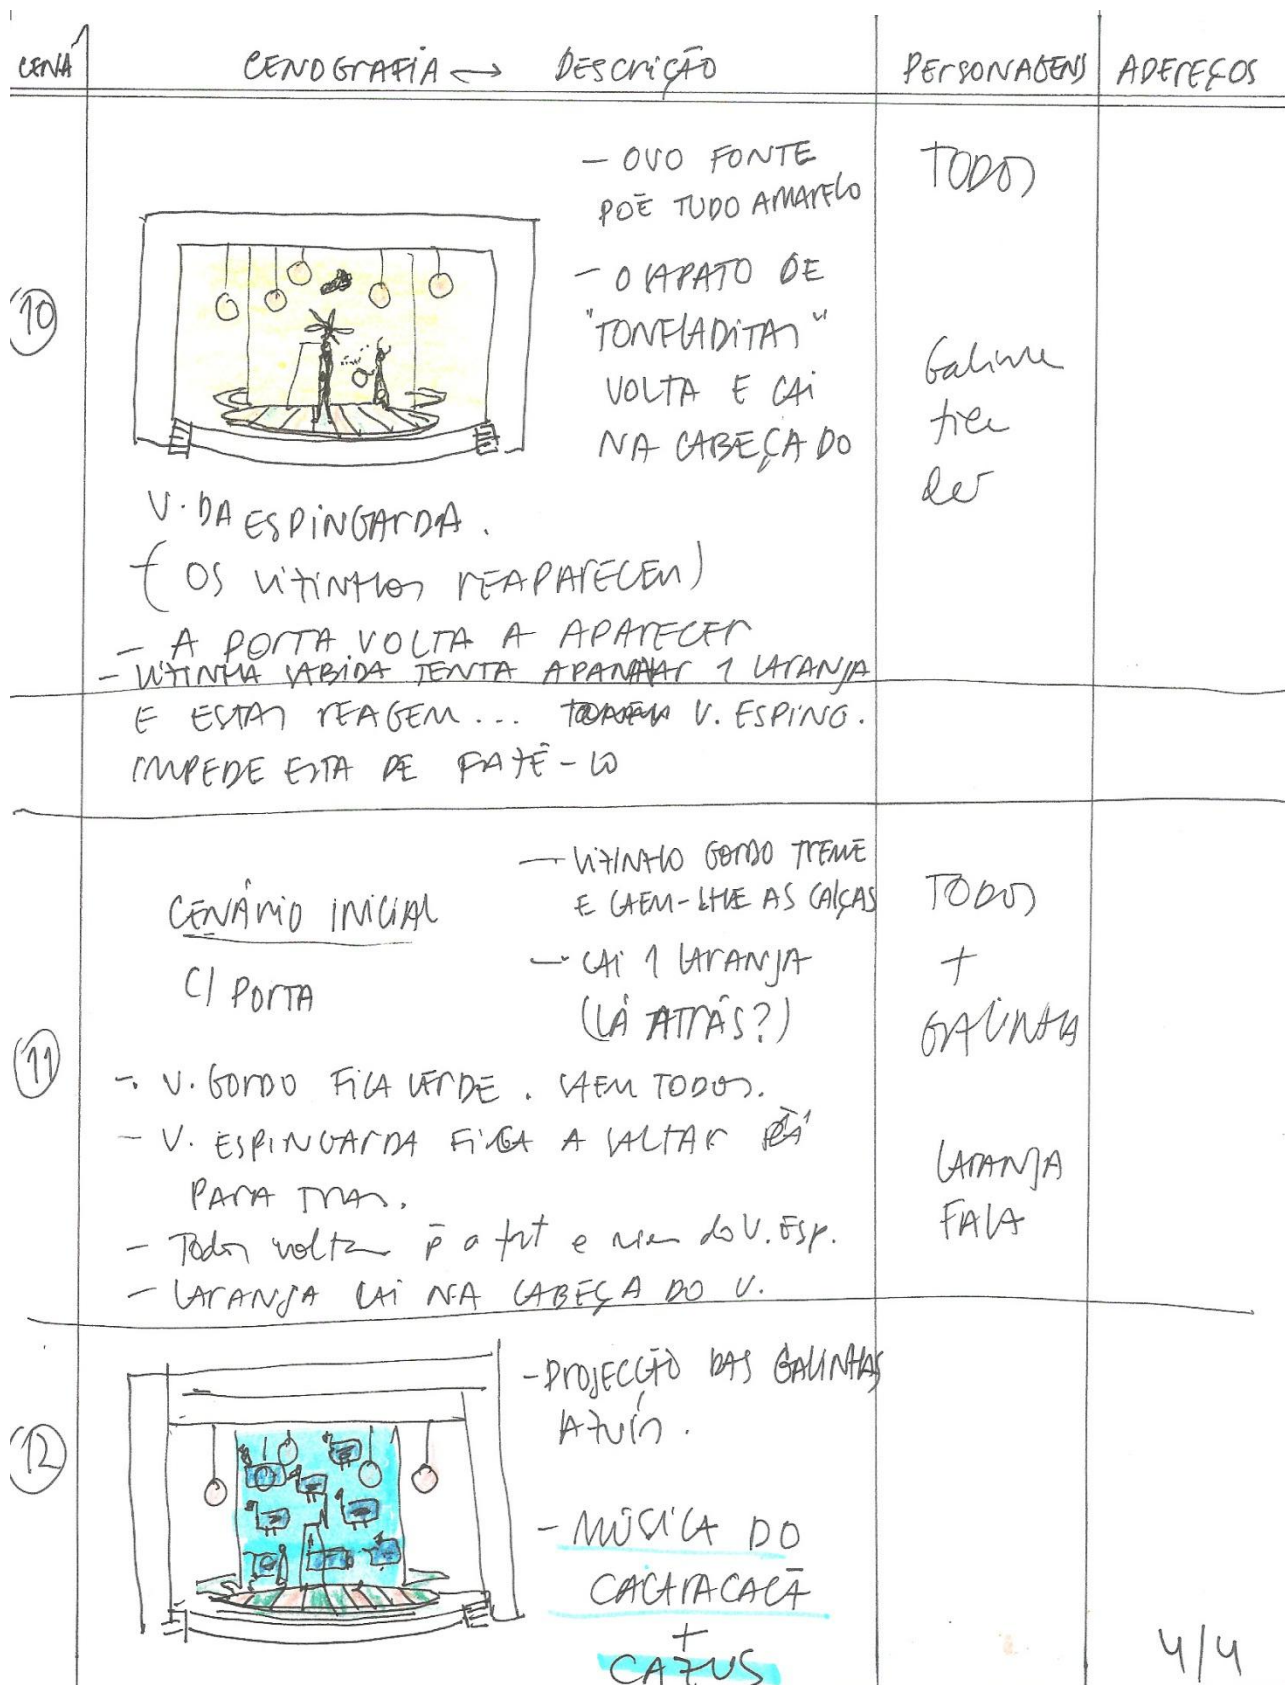 CENA
CENOGRAFIA ↔ DESCRIÇÃO
PERSONAGENS
ADEREÇOS
10
- OVO FONTE
PÕE TUDO AMARELO
- O SAPATO DE
"TONELADITAS"
VOLTA E CAI
NA CABEÇA DO
V. DA ESPINGARDA.
(OS VIZINHOS REAPARECEM)
- A PORTA VOLTA A APARECER
- VIZINHA SABIDA TENTA APANHAR 1 LARANJA
E ESTAS REAGEM... V. ESPING.
IMPEDE ESTA DE FAZÊ-LO
TODOS
Galinha
11
CENÁRIO INICIAL
C/ PORTA
- VIZINHO GORDO TREME
E CAEM-LHE AS CALÇAS
- CAI 1 LARANJA
(LÁ ATRÁS?)
- V. GORDO FICA VERDE. SAEM TODOS.
- V. ESPINGARDA FICA A SALTAR
PARA TRÁS.
- Todos voltam p a e riem do V. Esp.
- LARANJA CAI NA CABEÇA DO V.
TODOS
+
GALINHA
LARANJA
FALA
12
- PROJECÇÃO DAS GALINHAS
AZUIS.
- MÚSICA DO
CACARACACÁ
+
CAZUS
4/4